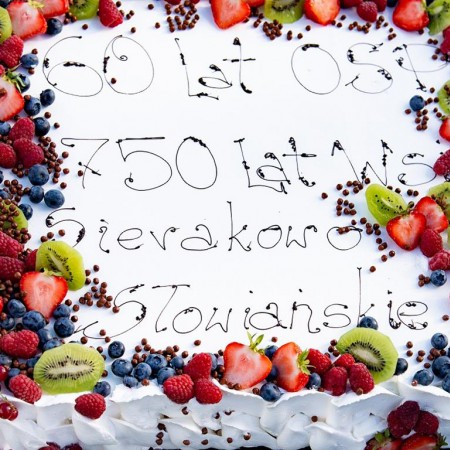 60 Lat OSP
750 Lat Wsi
Sierakowo
Słowiańskie